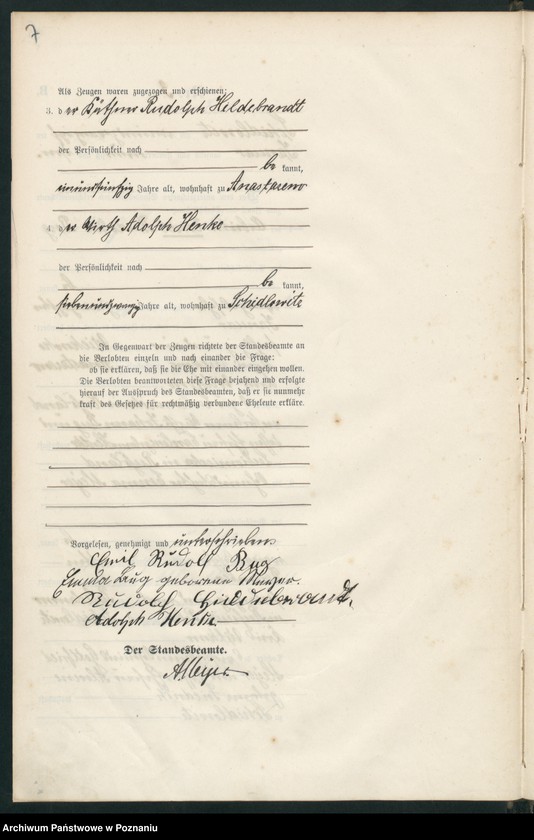 7
Als Zeugen waren zugezogen und erschienen:
3. der Käthner Rudolph Heldebrandt
der Persönlichkeit nach
bekannt,
einundfünfzig Jahre alt, wohnhaft zu Anastazewo
4. der Wirth Adolph Henke
der Persönlichkeit nach
bekannt,
siebenundzwanzig Jahre alt, wohnhaft zu Schidlowitz
In Gegenwart der Zeugen richtete der Standesbeamte an
die Verlobten einzeln und nach einander die Frage:
ob sie erklären, daß sie die Ehe mit einander eingehen wollen.
Die Verlobten beantworteten diese Frage bejahend und erfolgte
hierauf der Ausspruch des Standesbeamten, daß er sie nunmehr
kraft des Gesetzes für rechtmäßig verbundene Eheleute erkläre.
Vorgelesen, genehmigt und unterschrieben
Emil Rudolf
geborene
Rudolf Hildebrandt.
Adolph Henke
Der Standesbeamte.
Archiwum Państwowe w Poznaniu